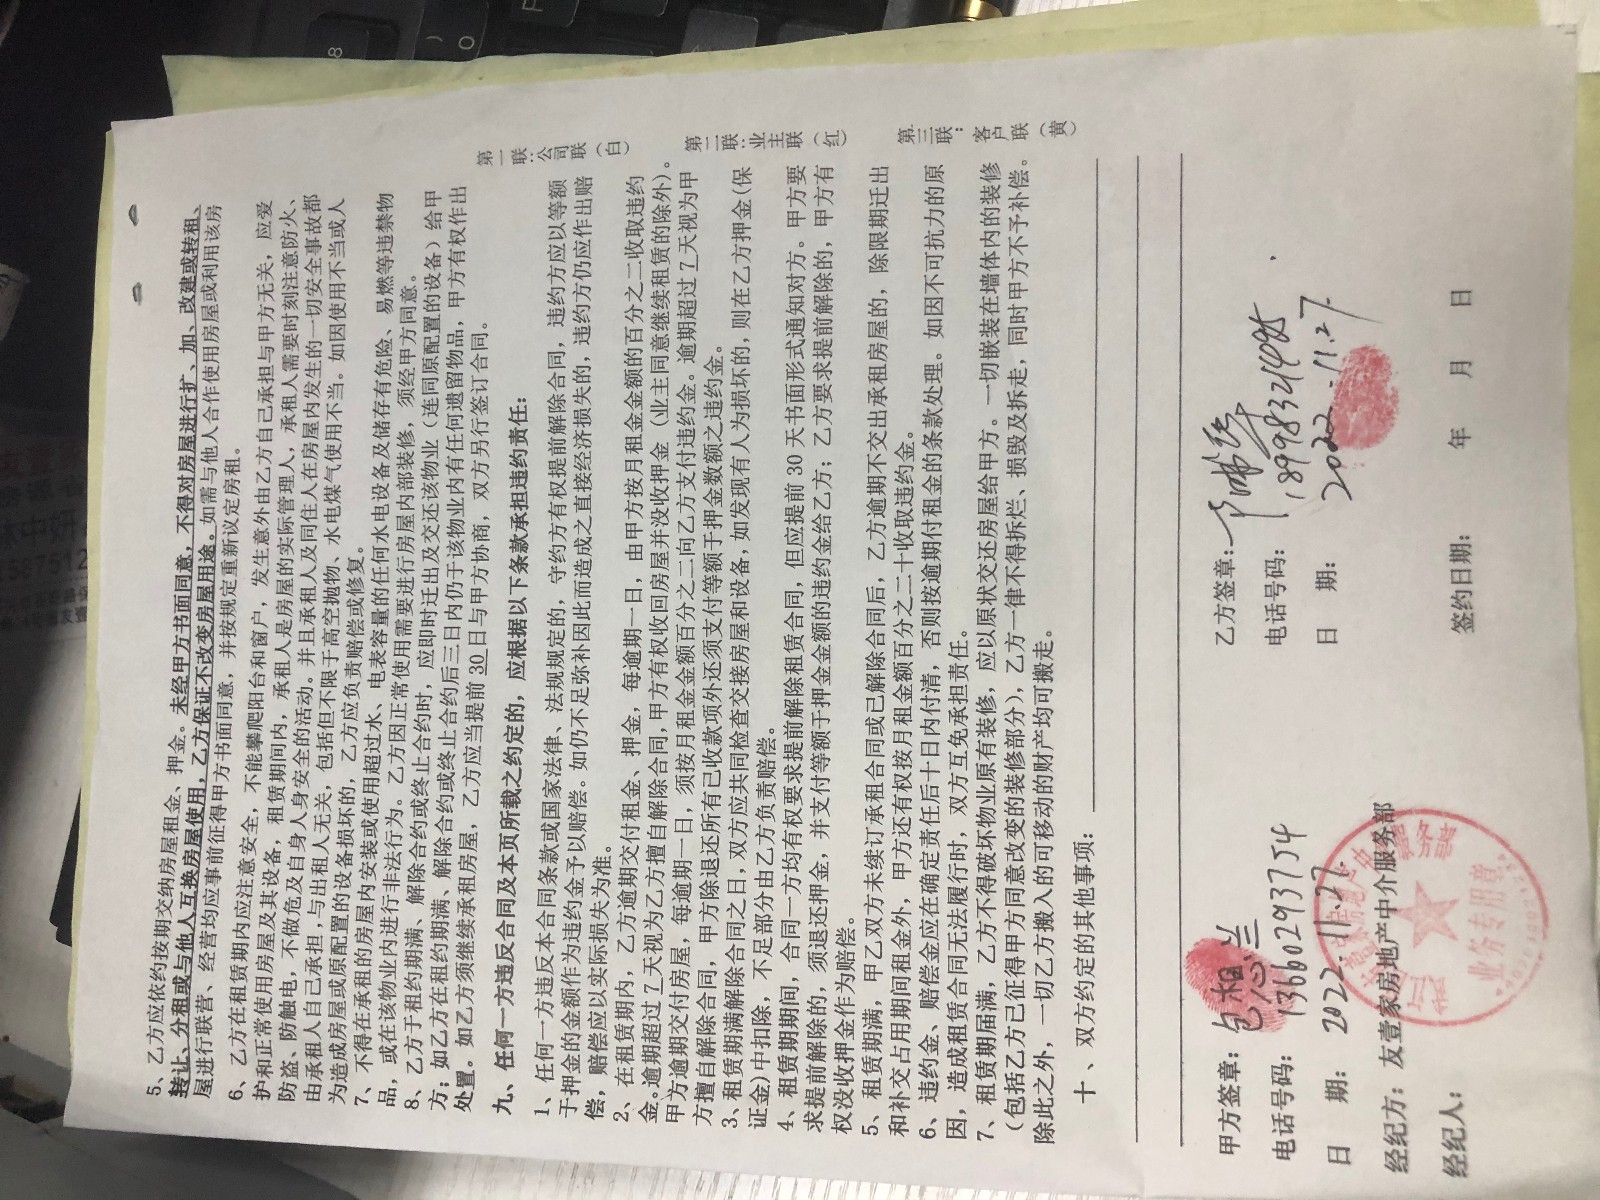 5、乙方应依约按期交纳房屋租金、押金。未经甲方书面同意，不得对房屋进行扩、加、改建或转租、
转让、分租或与他人互换房屋使用，乙方保证不改变房屋用途。如需与他人合作使用房屋或利用该房
屋进行联营、经营均应事前征得甲方书面同意，并按规定重新议定房租。
6、乙方在租赁期内应注意安全，不能攀爬阳台和窗户，发生意外由乙方自己承担与甲方无关，应爱
护和正常使用房屋及其设备，租赁期间内，承租人是房屋的实际管理人，承租人需要时刻注意防火、
防盗、防触电，不做危及自身人身安全的活动。并且承租人及同住人在房屋内发生的一切安全事故都
由承租人自己承担，与出租人无关，包括但不限于高空抛物、水电煤气使用不当。如因使用不当或人
为造成房屋或原配置的设备损坏的，乙方应负责赔偿或修复。
7、不得在承租的房屋内安装或使用超过水、电表容量的任何水电设备及储存有危险、易燃等违禁物
品，或在该物业内进行非法行为。乙方因正常使用需要进行房屋内部装修，须经甲方同意。
8、乙方于租约期满、解除合约或终止合约时，应即时迁出及交还该物业（连同原配置的设备）给甲
方；如乙方在租约期满、解除合约或终止合约后三日内仍于该物业内有任何遗留物品，甲方有权作出
处置。如乙方须继续承租房屋，乙方应当提前30日与甲方协商，双方另行签订合同。
九、任何一方违反合同及本页所载之约定的，应根据以下条款承担违约责任：
1、任何一方违反本合同条款或国家法律、法规规定的，守约方有权提前解除合同，违约方应以等额
于押金的金额作为违约金予以赔偿。如仍不足弥补因此而造成之直接经济损失的，违约方仍应作出赔
偿，赔偿应以实际损失为准。
2、在租赁期内，乙方逾期交付租金、押金，每逾期一日，由甲方按月租金金额的百分之二收取违约
金。逾期超过7天视为乙方擅自解除合同，甲方有权收回房屋并没收押金（业主同意继续租赁的除外）。
甲方逾期交付房屋，每逾期一日，须按月租金金额百分之二向乙方支付违约金。逾期超过7天视为甲
方擅自解除合同，甲方除退还所有已收款项外还须支付等额于押金数额之违约金。
3、租赁期满解除合同之日，双方应共同检查交接房屋和设备，如发现有人为损坏的，则在乙方押金（保
证金）中扣除，不足部分由乙方负责赔偿。
4、租赁期期间，合同一方均有权要求提前解除租赁合同，但应提前30天书面形式通知对方。甲方要
求提前解除的，须退还押金，并支付等额于押金金额的违约金给乙方；乙方要求提前解除的，甲方有
权没收押金作为赔偿。
5、租赁期满，甲乙双方未续订承租合同或已解除合同后，乙方逾期不交出承租房屋的，除限期迁出
和补交占用期间租金外，甲方还有权按月租金额百分之二十收取违约金。
6、违约金、赔偿金应在确定责任后十日内付清，否则按逾期付租金的条款处理。如因不可抗力的原
因，造成租赁合同无法履行时，双方互免承担责任。
7、租赁期届满，乙方不得破坏物业原有装修，应以原状交还房屋给甲方。一切嵌装在墙体内的装修
（包括乙方已征得甲方同意改变的装修部分），乙方一律不得拆烂、损毁及拆走，同时甲方不予补偿。
除此之外，一切乙方搬入的可移动的财产均可搬走。
十、双方约定的其他事项：
第一联：公司联（白）
第二联：业主联（红）
第三联：客户联（黄）
甲方签章：
电话号码：13660293754
日 期：2022.11.27
经纪方：友壹家房地产中介服务部
经纪人：
业务专用章
乙方签章：
电话号码：18998321495
日 期：2022.11.27.
签约日期： 年 月 日